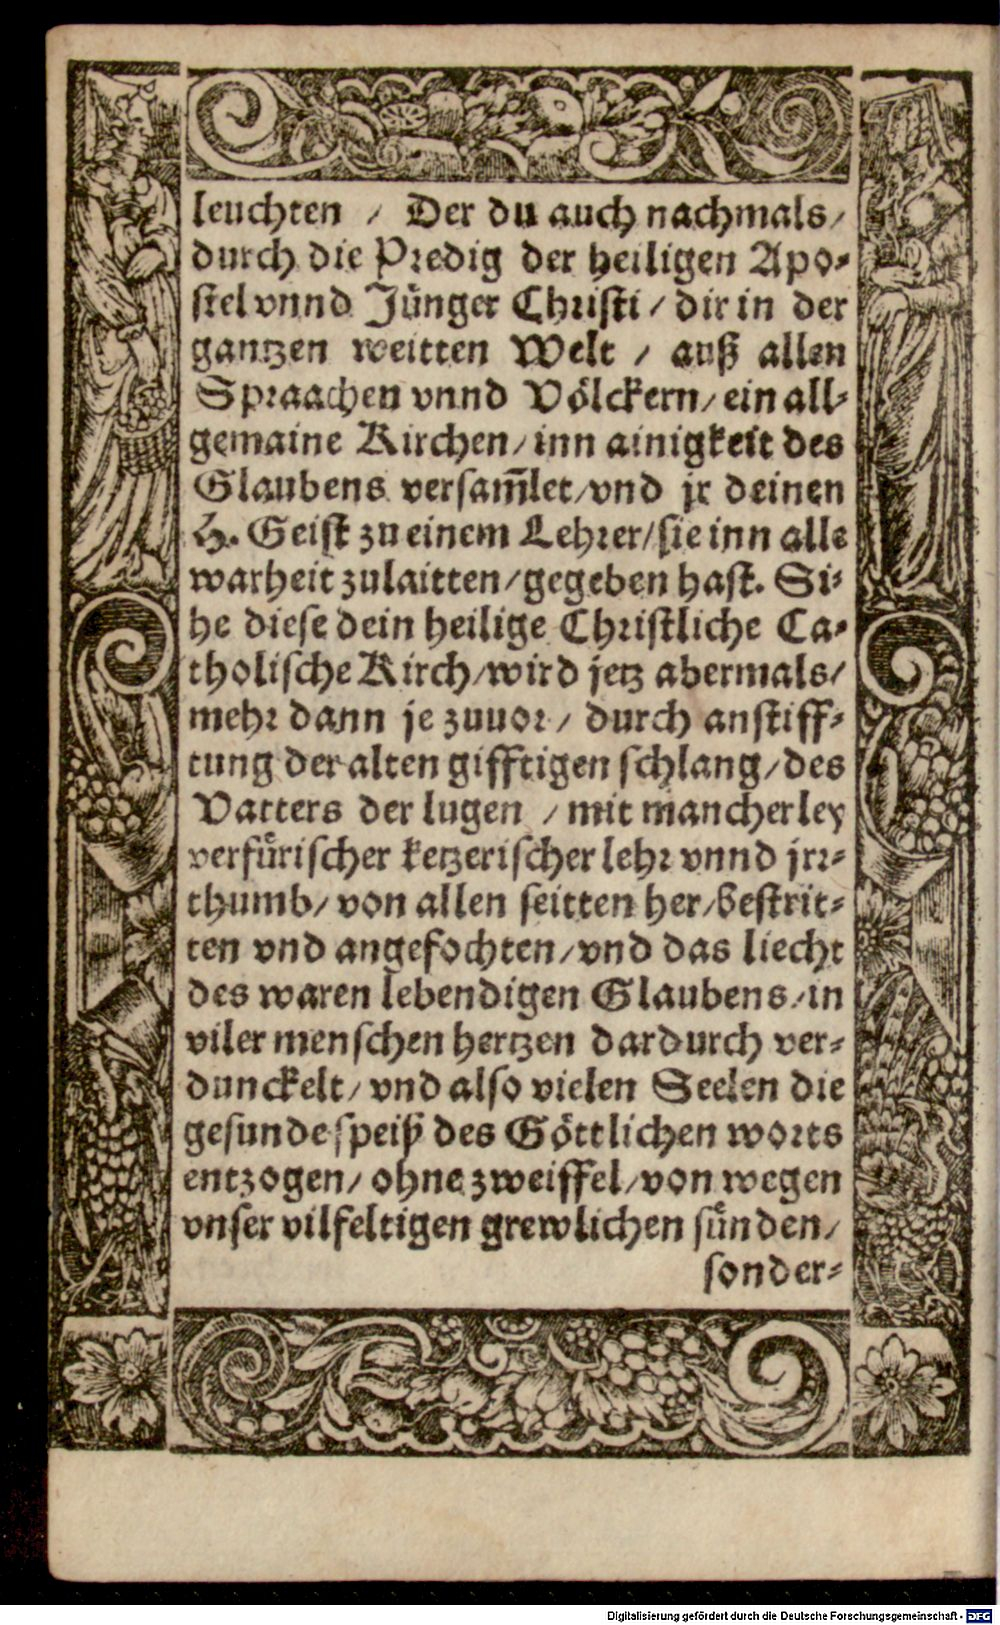 leuchten / Der du auch nachmals/
durch die Predig der heiligen Apo-
stel vnnd Jünger Christi / dir in der
gantzen weitten Welt / auß allen
Spraachen vnnd Völckern/ ein all-
gemaine Kirchen/ inn ainigkeit des
Glaubens versam̃let/vnd jr deinen
H. Geist zu einem Lehrer/ sie inn alle
warheit zulaitten/gegeben hast. Si-
he diese dein heilige Christliche Ca-
tholische Kirch/wird jetz abermals/
mehr dann je zuuor / durch anstiff-
tung der alten gifftigen schlang/des
Vatters der lugen / mit mancherley
verfürischer ketzerischer lehr vnnd jrr-
thumb/ von allen seitten her/bestrit-
ten vnd angefochten/vnd das liecht
des waren lebendigen Glaubens/in
viler menschen hertzen dardurch ver-
dunckelt/ vnd also vielen Seelen die
gesunde speiß des Göttlichen worts
entzogen/ ohne zweiffel/von wegen
vnser vilfeltigen grewlichen sünden/
sonder-
Digitalisierung gefördert durch die Deutsche Forschungsgemeinschaft - DFG